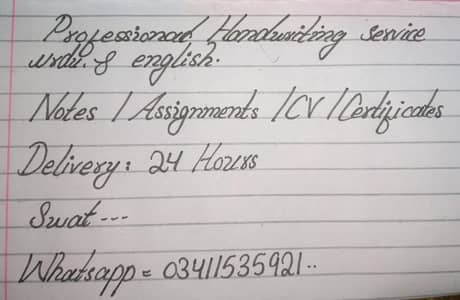 Professional Handwriting service
urdu & english.
Notes / Assignments / CV / Certificates
Delivery: 24 Hours
Swat ---
Whatsapp = 03411535921..